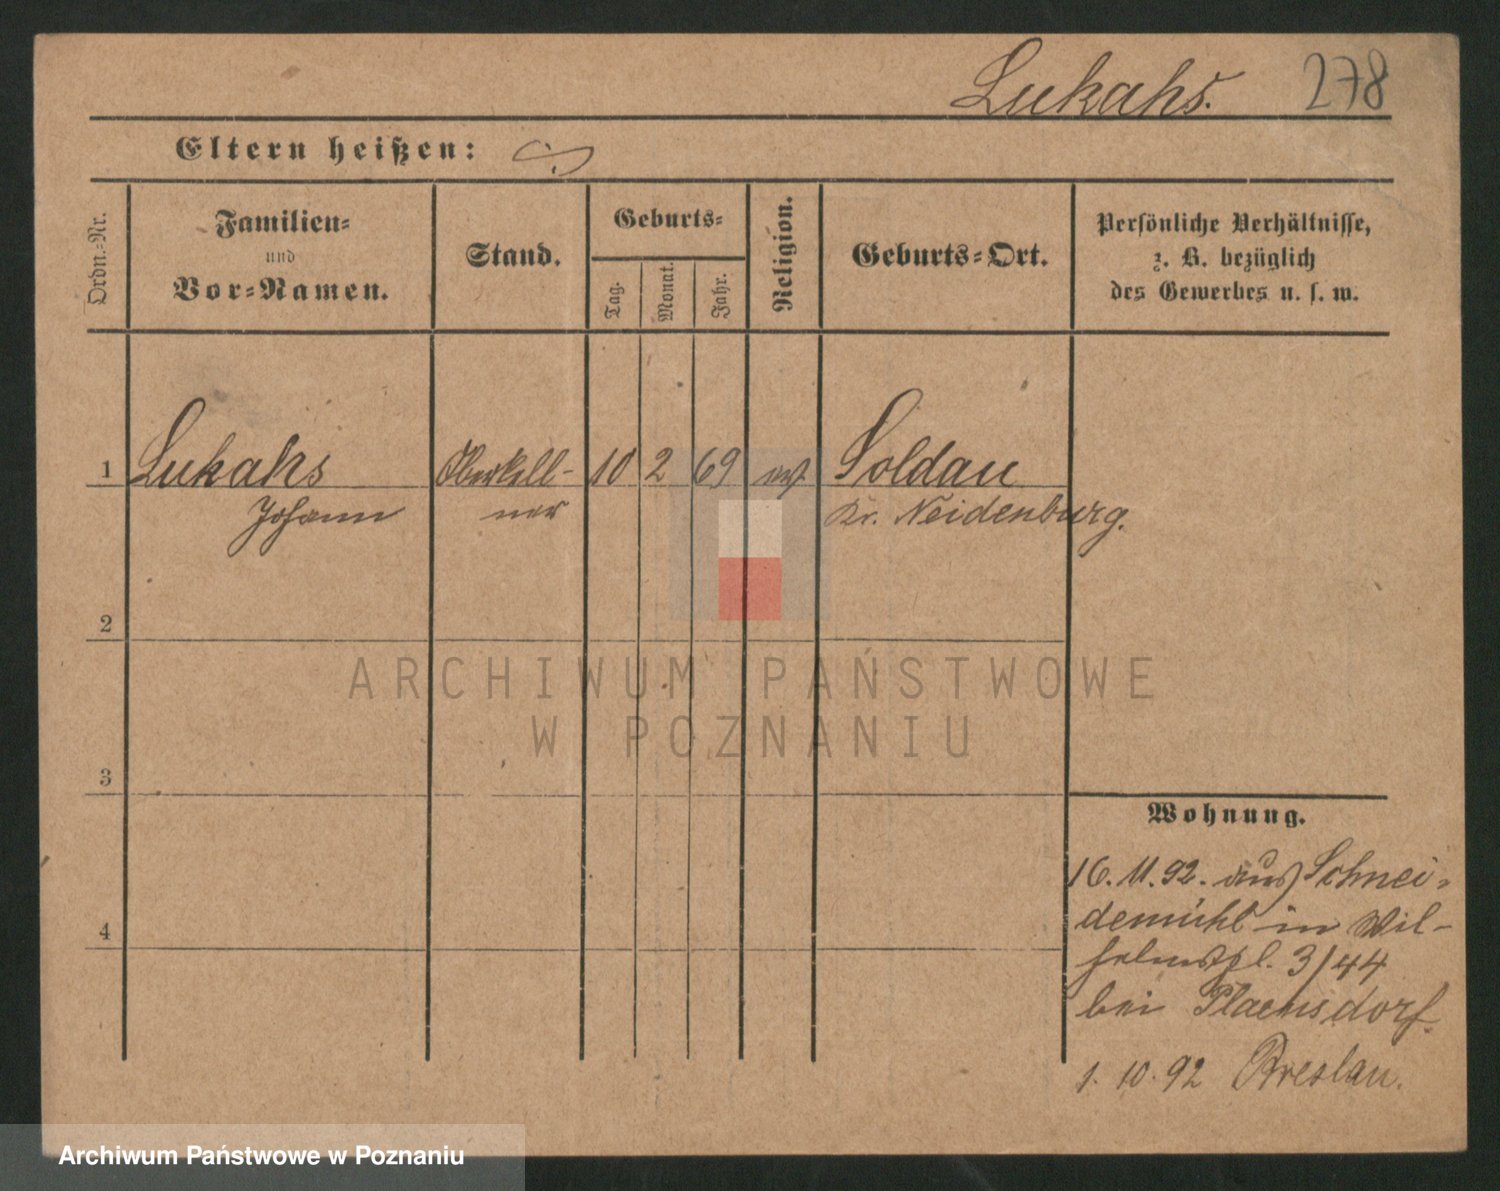 Lukahs. 278
Eltern heißen:
Ordn.-Nr.
Familien-
und
Vor-Namen.
Stand.
Geburts-
Tag.
Monat.
Jahr.
Religion.
Geburts-Ort.
Persönliche Verhältnisse,
z. B. bezüglich
des Gewerbes u. s. w.
1 Lukahs Oberkell- 10 2 69 Soldau
Johann ner Kr. Neidenburg.
2
3
4
ARCHIWUM PAŃSTWOWE
W POZNANIU
Wohnung.
16. 11. 92. aus Schnei-
demühl in Wil-
helmspl. 3/44
bei Plaensdorf.
1. 10. 92 Breslau.
Archiwum Państwowe w Poznaniu